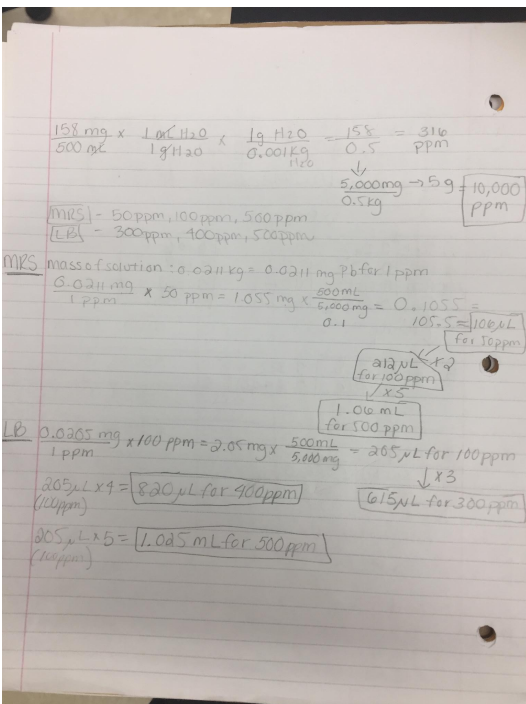 158 mg / 500 mL × 1 mL H2O / 1 g H2O × 1g H2O / 0.001kg H2O = 158 / 0.5 = 316 ppm
↓
5,000mg / 0.5kg → 5g = 10,000 ppm
[MRS] - 50ppm, 100ppm, 500ppm
[LB] - 300ppm, 400ppm, 500ppm
MRS mass of solution: 0.0211 kg = 0.0211 mg Pb for 1 ppm
0.0211 mg / 1 ppm × 50 ppm = 1.055 mg × 500mL / 5,000mg = 0.1055 =
0.1
105.5 = 106µL for 50ppm
↙ ×2
212 µL for 100ppm
↓ ×5
1.06 mL for 500 ppm
LB 0.0205 mg / 1 ppm × 100 ppm = 2.05mg × 500mL / 5,000mg = 205 µL for 100ppm
↓ ×3
615µL for 300ppm
205µL × 4 = 820 µL for 400ppm
(100ppm)
205µL × 5 = 1.025 mL for 500ppm
(100ppm)